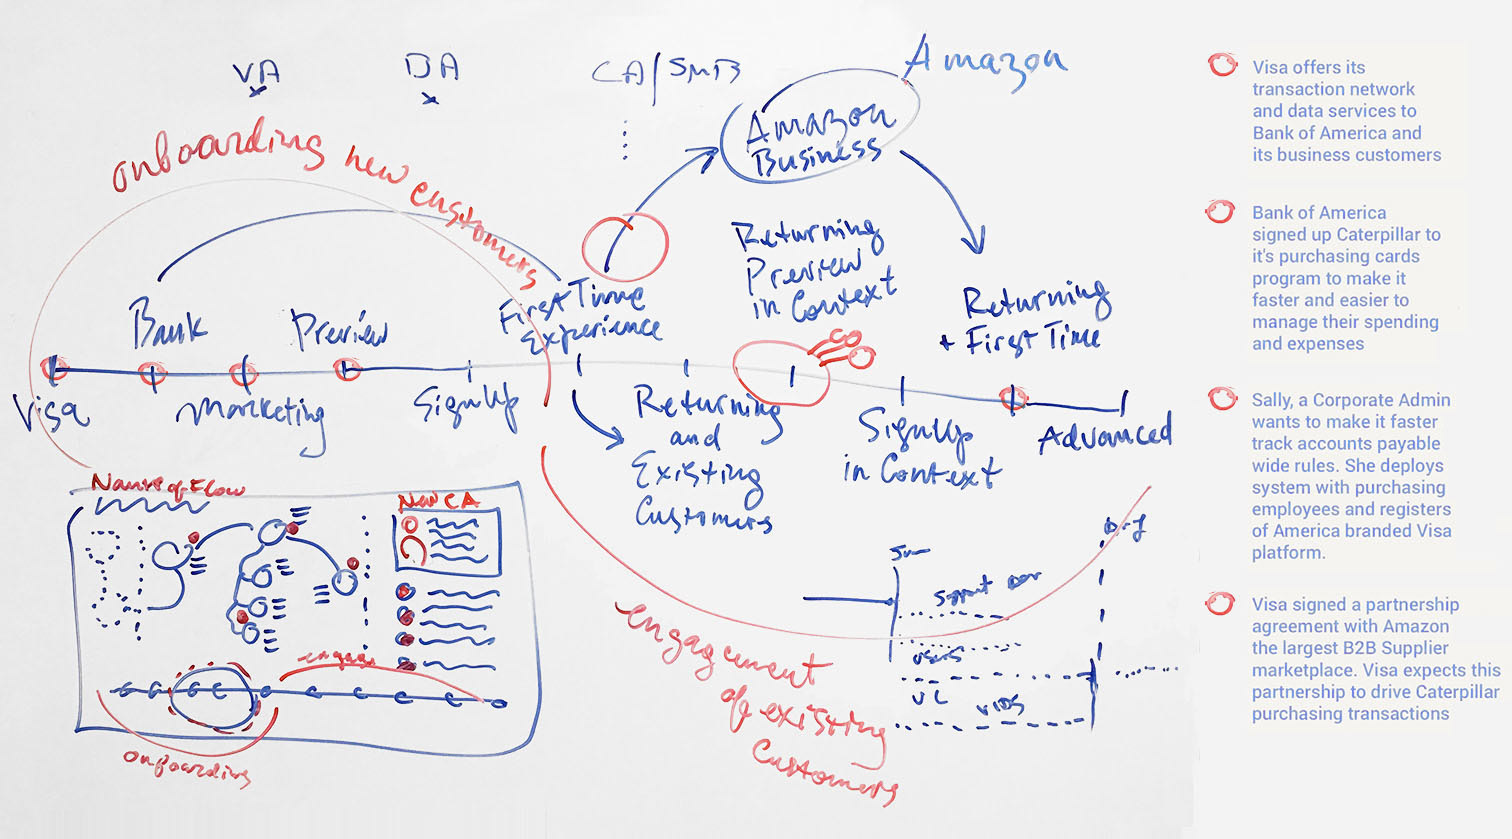 VA
BA
CA/SMB
Amazon
onboarding new customers
Amazon
Business
Bank
Preview
First Time
Experience
Returning
Preview
in Context
Returning
+ First Time
Visa
Marketing
SignUp
Returning
and
Existing
Customers
SignUp
in Context
Advanced
Name of Flow
New CA
onboarding
engagement
of existing
customers
support
users
VL
Visa offers its
transaction network
and data services to
Bank of America and
its business customers
Bank of America
signed up Caterpillar to
it's purchasing cards
program to make it
faster and easier to
manage their spending
and expenses
Sally, a Corporate Admin
wants to make it faster
track accounts payable
wide rules. She deploys
system with purchasing
employees and registers
of America branded Visa
platform.
Visa signed a partnership
agreement with Amazon
the largest B2B Supplier
marketplace. Visa expects this
partnership to drive Caterpillar
purchasing transactions